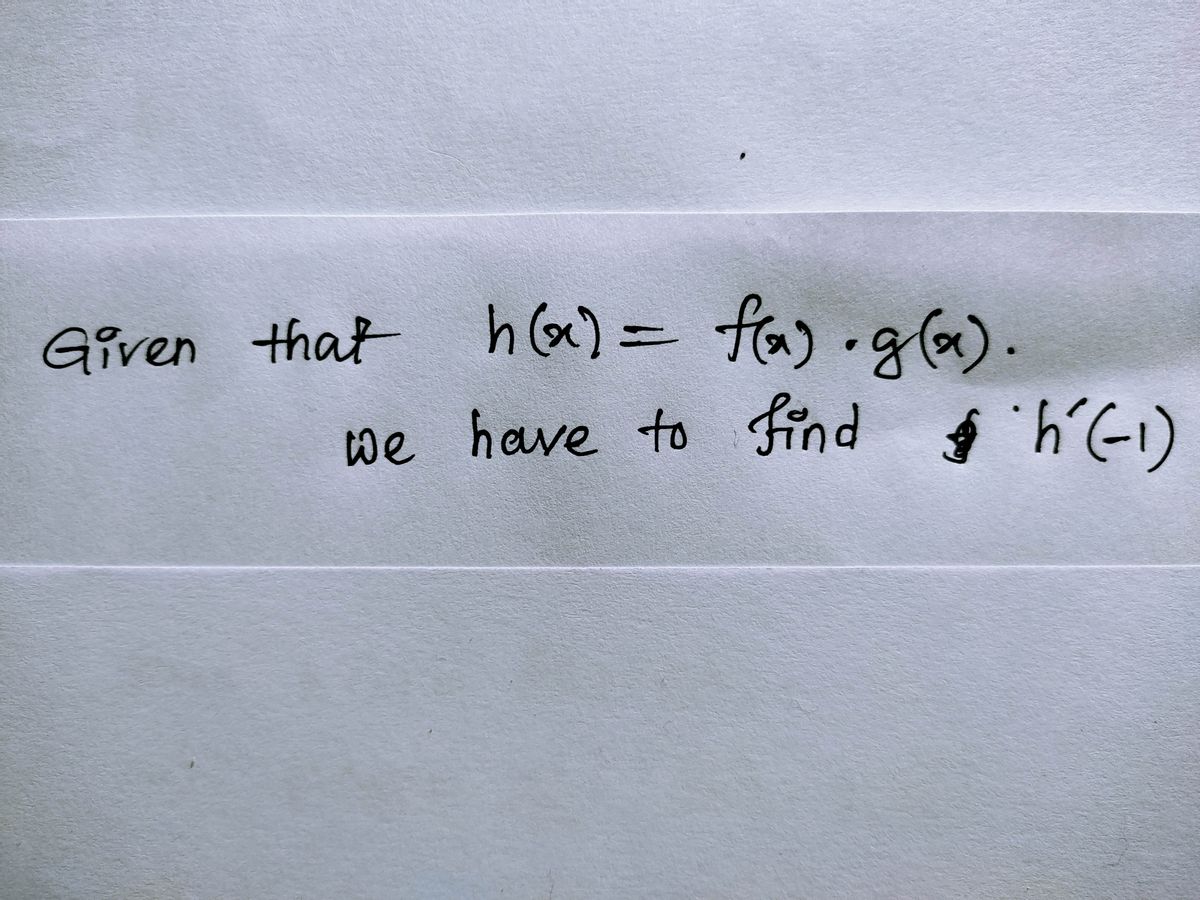 Given that h(x) = f(x) · g(x).
we have to find h'(-1)